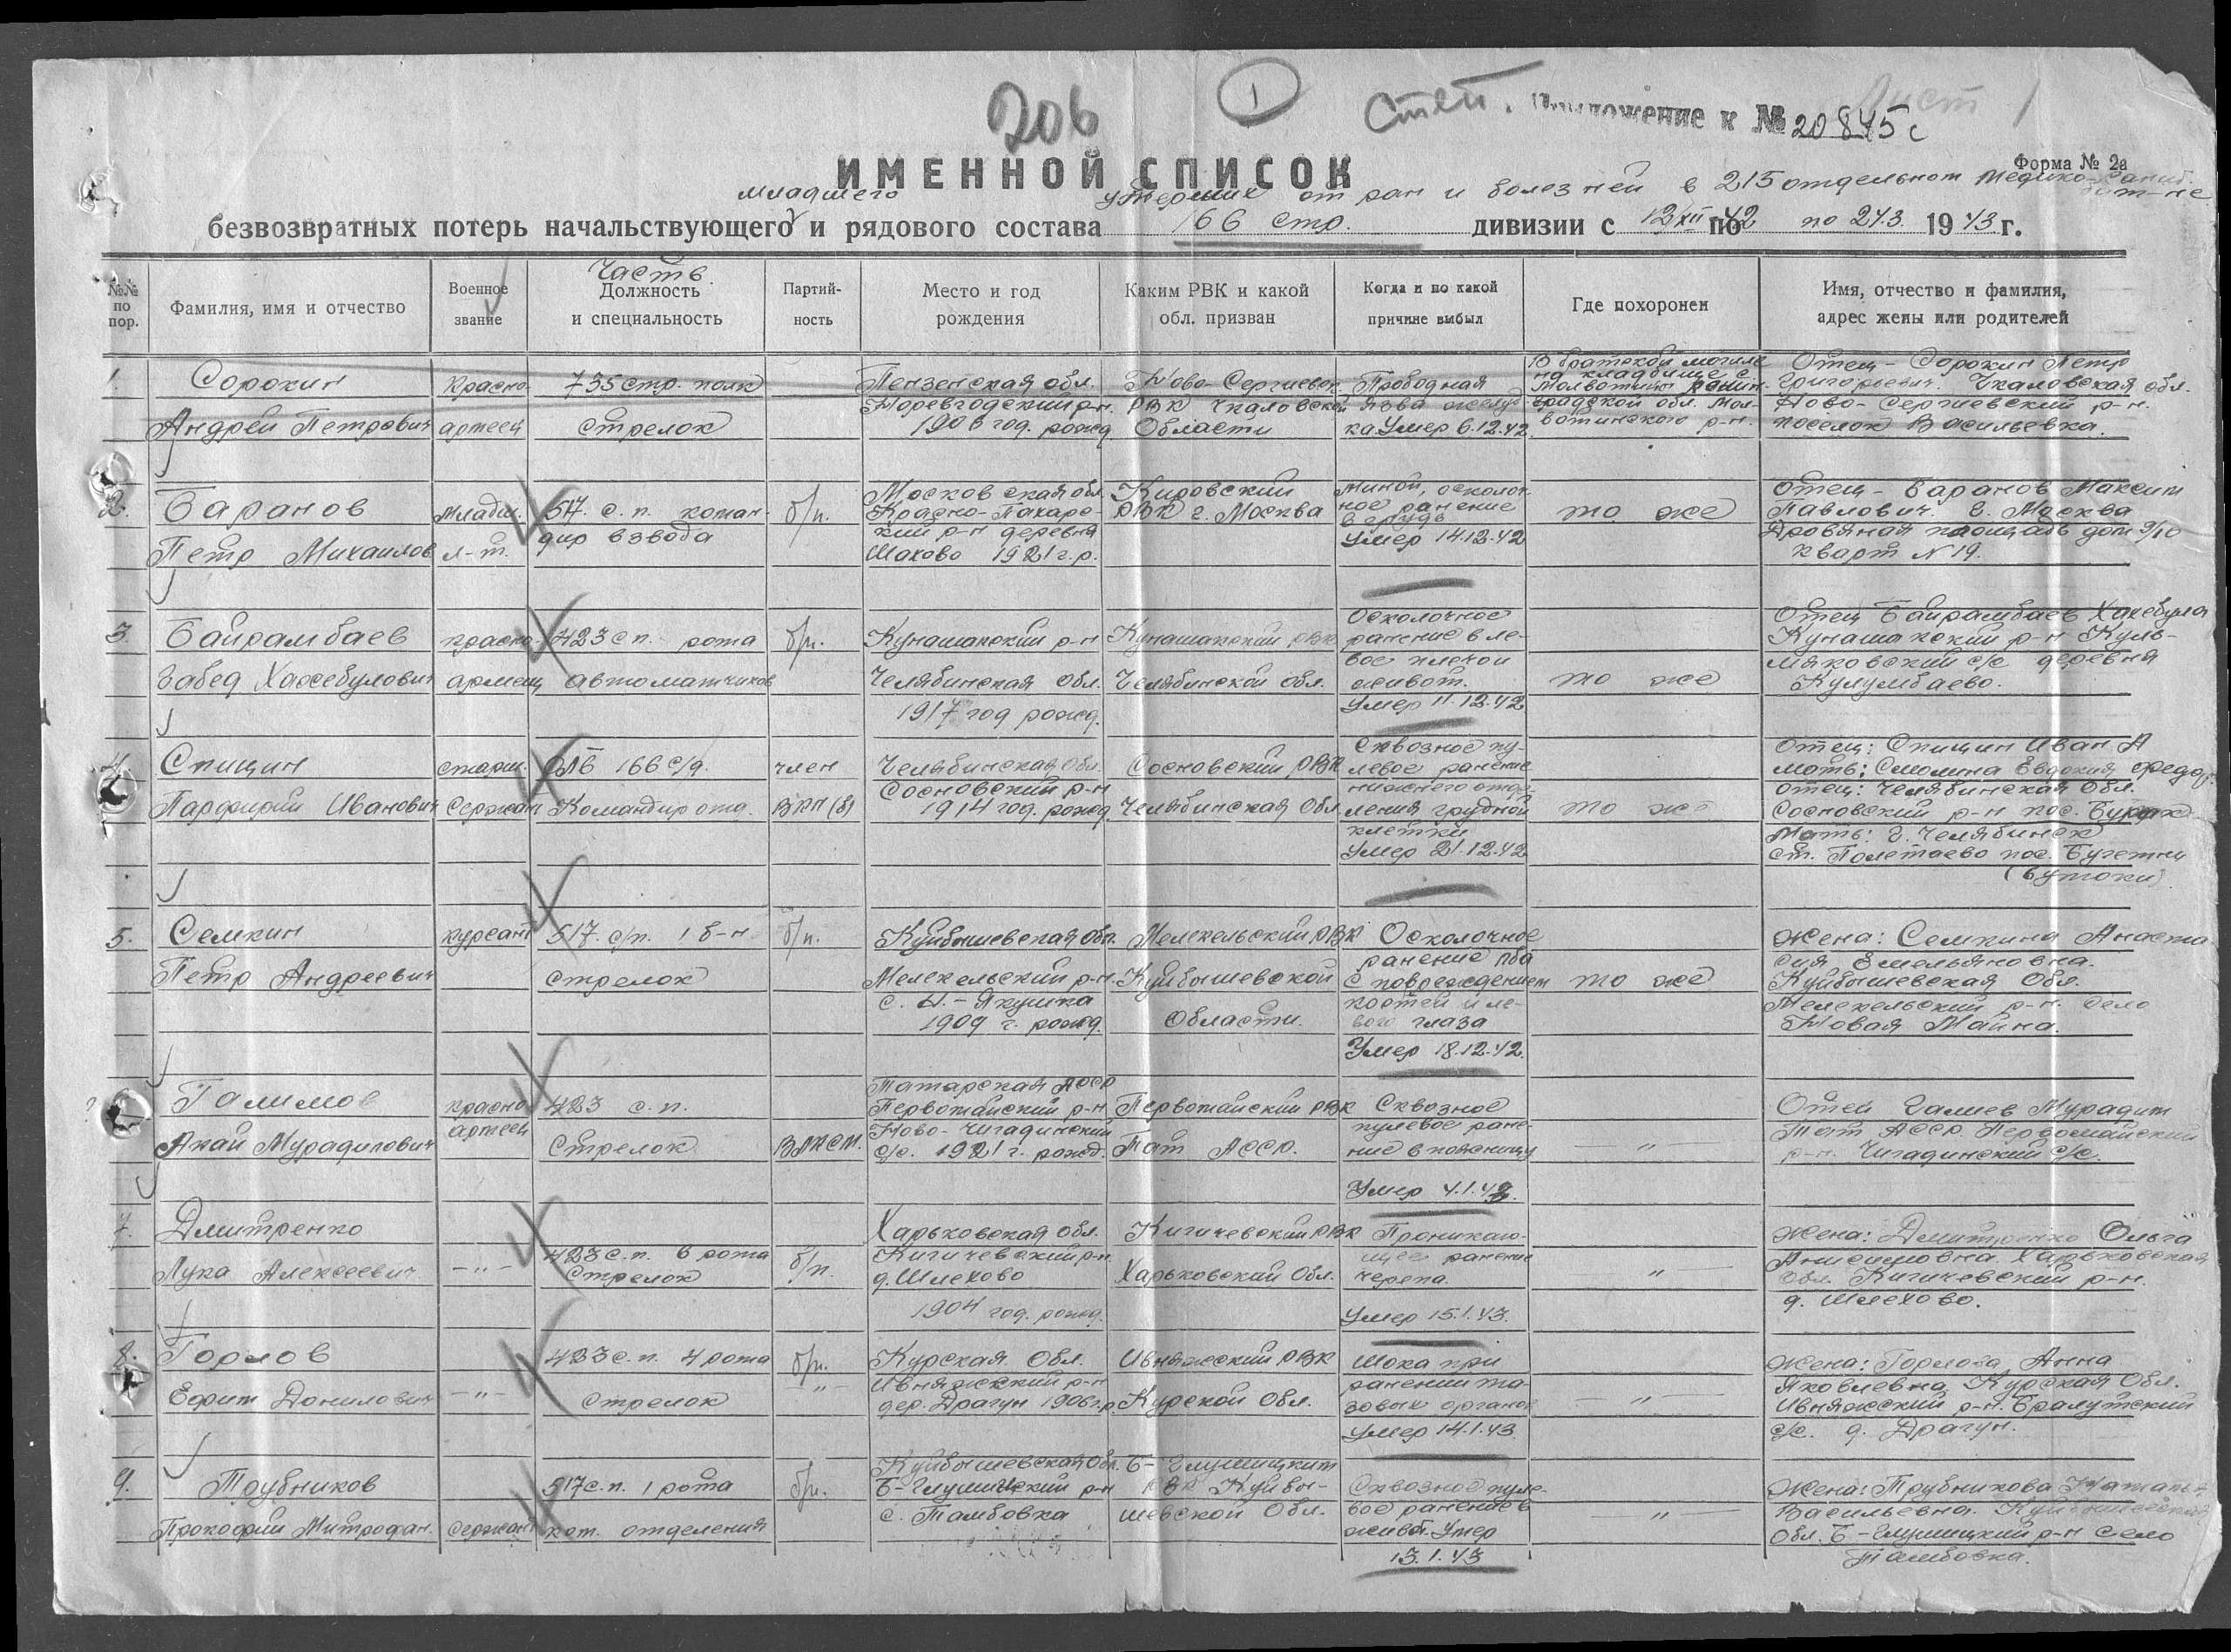 206
1
Степ. Приложение к № 20845с
Лист 1
Форма № 2а
ИМЕННОЙ СПИСОК
младшего умерших от ран и болезней в 215 отдельном медико-
безвозвратных потерь начальствующего и рядового состава 166 стр. дивизии с 12/XII 42 по 24.3. 1943 г.
№№ по пор.
Фамилия, имя и отчество
Военное звание
Часть
Должность и специальность
Партий-ность
Место и год рождения
Каким РВК и какой обл. призван
Когда и по какой причине выбыл
Где похоронен
Имя, отчество и фамилия, адрес жены или родителей
1.
Сорокин
Андрей Петрович
Красно-
армеец
735 стр. полк
стрелок
Пензенская обл.
р-н.
1906 год. рожд
Ново-Сергиевск.
РВК Чкаловской
Области
Прободная
язва желуд
ка Умер 6.12.42
В братской могиле
на кладбище с
Молвотицы Ленин-
градской обл. Мол-
вотинского р-н.
Отец - Сорокин Петр
Григорьевич. Чкаловская обл.
Ново-Сергиевский р-н.
поселок Васильевка.
2.
Баранов
Петр Михаилов
Младш.
л-т.
517. с.п. коман-
дир взвода
б/п.
Московская обл.
Красно-Пахарс-
кий р-н деревня
Шахово 1921 г.р.
Кировский
РВК г. Москва
Миной, осколоч
ное ранение
в грудь
Умер 14.12.42
то же
Отец - Баранов Максим
Павлович. г. Москва
Дровяная площадь дом 9/10
кварт N 19.
3.
Байрамбаев
Забед Хажебулович
красно-
армеец
423 с п. рота
автоматчиков
б/п.
Кунашакский р-н
Челябинская обл.
1917 год рожд.
Кунашакский РВК
Челябинской обл.
Осколочное
ранение в ле-
вое плечо и
живот.
Умер 11.12.42
то же
Отец Байрамбаев Хажебула
Кунашакский р-н Куль-
мяковский с/с деревня
Кулумбаево.
4.
Спицин
Парфирий Иванович
старш.
Сержант
166 с/д.
Командир отд.
член
ВКП(б)
Челябинская обл.
Сосновский р-н
1914 год. рожд.
Сосновский РВК
Челябинская Обл.
Сквозное пу-
левое ранение
нижнего отде-
ления грудной
клетки
Умер 21.12.42
то же
Отец: Спицин Иван А
Мать: Смолина Евдокия
отец: Челябинская Обл.
Сосновский р-н пос.
Мать: г. Челябинск
ст. Полетаево пос.
(Бутаки)
5.
Семкин
Петр Андреевич
курсант
517. с/п. 1 б-н
стрелок
б/п.
Куйбышевская обл.
Мелекельский р-н.
с. Н.-Якушка
1909 г. рожд.
Мелекельский РВК
Куйбышевской
Области.
Осколочное
ранение лба
с повреждением
костей и ле-
вого глаза
Умер 18.12.42.
то же
Жена: Семкина Анаста
сия Емельяновна.
Куйбышевская Обл.
Мелекельский р-н. село
Новая Майна.
Галимов
Акай Мурадилович
красно
армеец
423 с.п.
Стрелок
ВЛКСМ.
Татарская АССР
Первомайский р-н
Ново-Чигадинский
с/с. 1921 г. рожд.
Первомайский РВК
Тат АССР.
Сквозное
пулевое ране-
ние в поясницу
Умер 4.1.43.
-"-
Отец Галиев Мурадим
Тат АССР Первомайский
р-н. Чигадинский с/с.
7.
Дмитренко
Лука Алексеевич
-"-
423 с.п. 6 рота
Стрелок
б/п.
Харьковская обл.
Кигичевский р-н.
д. Шлехово
1904 год. рожд.
Кигичевский РВК
Харьковский Обл.
Проникаю-
щее ранение
черепа.
Умер 15.1.43.
-"-
Жена: Дмитренко Ольга
Анисимовна Харьковская
Обл. Кигичевский р-н.
д. Шлехово.
8.
Горлов
Ефим Данилович
-"-
423 с.п. 4 рота
стрелок
б/п.
-"-
Курская Обл.
Ивняжский р-н
дер. Драгун 1906 г.р
Ивняжский РВК
Курской Обл.
Шока при
ранении та-
зовых органов
Умер 14.1.43.
-"-
Жена: Горлова Анна
Яковлевна Курская Обл.
Ивняжский р-н.
с/с. д. Драгун.
9.
Трубников
Прокофий Митрофан.
сержант
517 с.п. 1 рота
ком. отделения
б/п.
Куйбышевская Обл.
Б-Глушицкий р-н
с. Тамбовка
Б-Глушицким
РВК Куйбы-
шевской Обл.
Сквозное пуле-
вое ранение в
живот. Умер
13.1.43
-"-
Жена: Трубникова Наталья
Васильевна. Куйбышевская
Обл. Б-Глушицкий р-н село
Тамбовка.